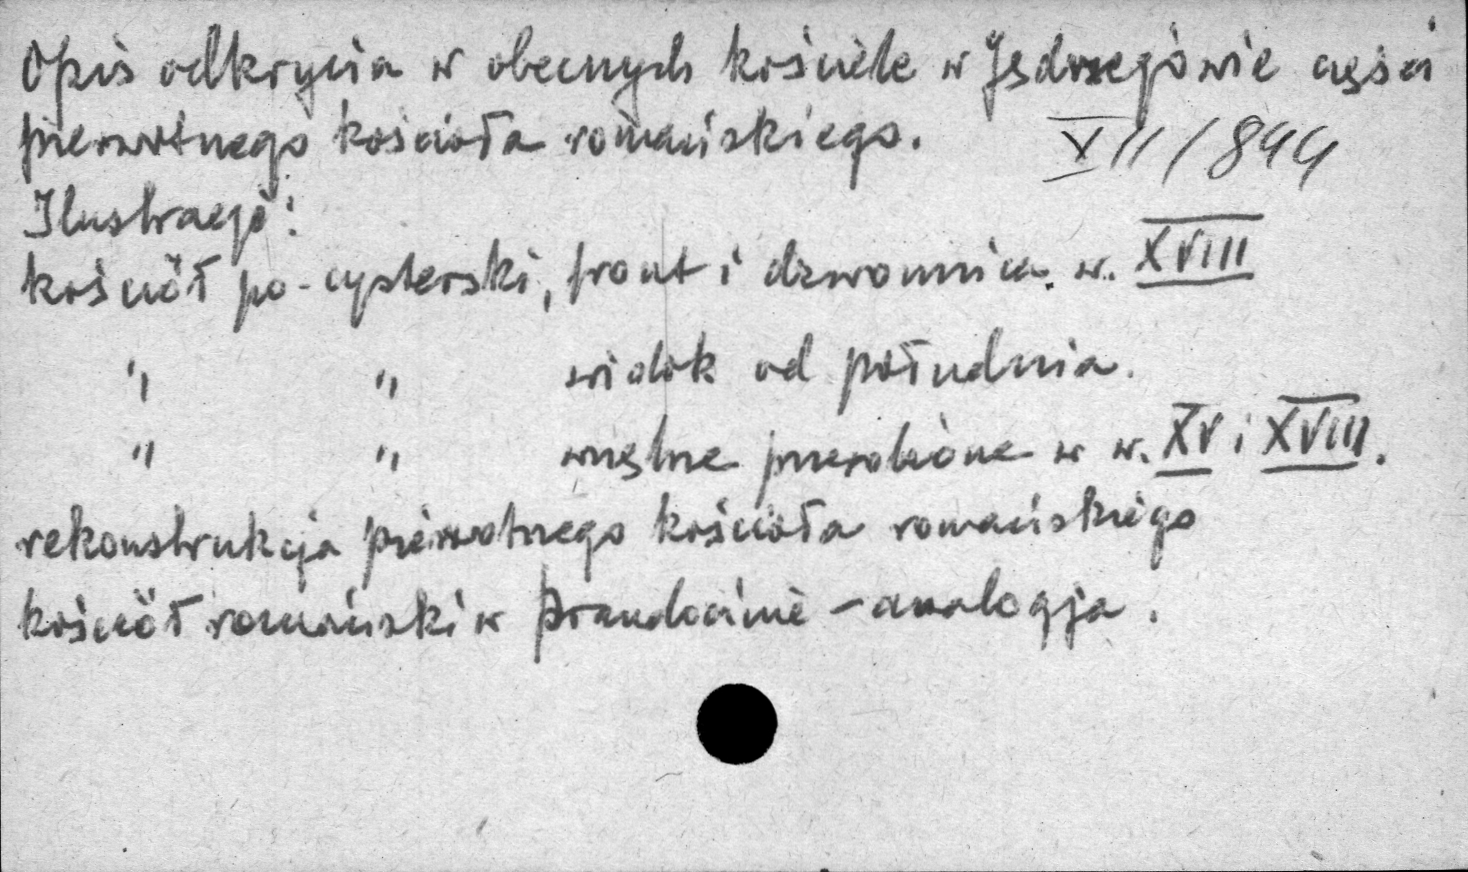 Opis odkrycia w obecnych kościele w Jędrzejowie części
pierwotnego kościoła romańskiego.
XII/844
Ilustracje:
kościół po-cysterski, front i dzwonnica. w. XVIII
" " widok od południa.
" " wnętrze przerobione w w. XV i XVIII.
rekonstrukcja pierwotnego kościoła romańskiego
kościół romański w Prandocinie - analogja.